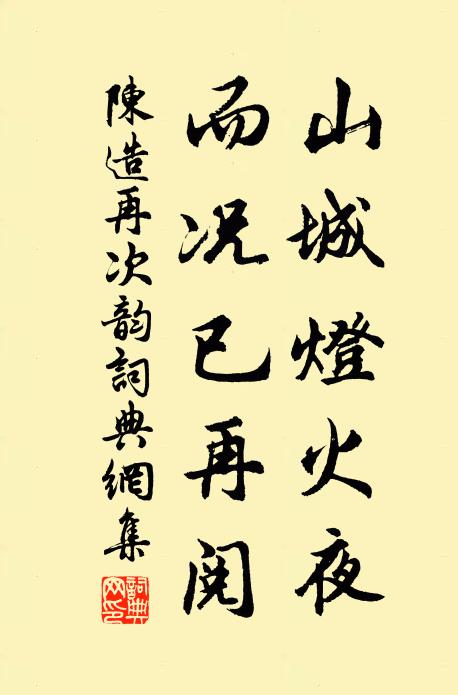 山城燈火夜
而況已再閱
陳造再次韵詞典網集
詞典網印